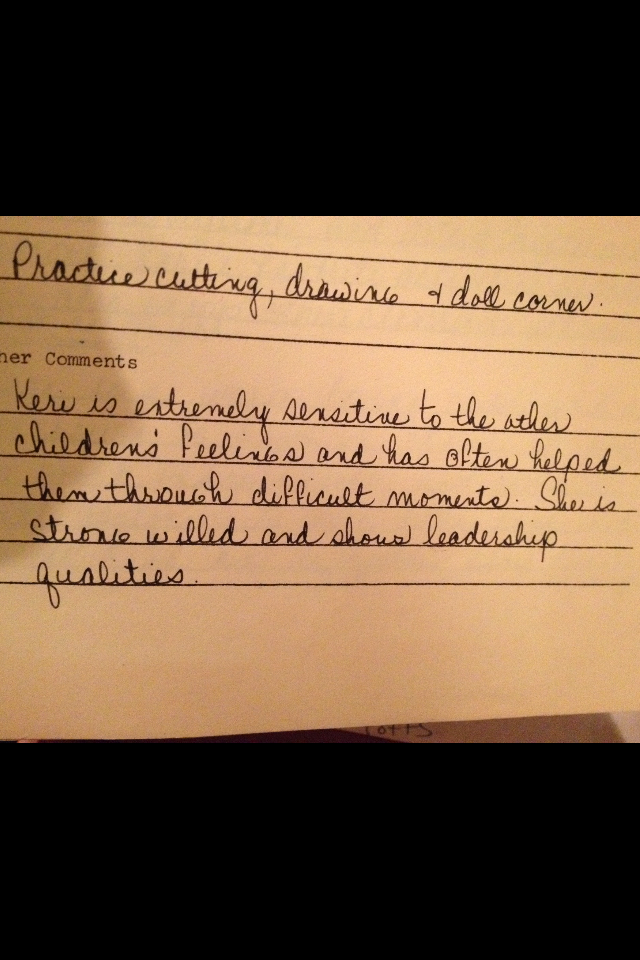 Practice cutting, drawing & doll corner.
her Comments
Keri is extremely sensitive to the other
children's feelings and has often helped
them through difficult moments. She is
strong willed and shows leadership
qualities.